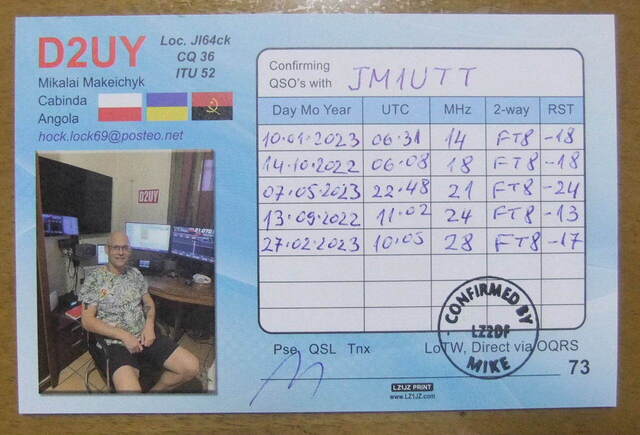 D2UY
Loc. JI64ck
CQ 36
ITU 52
Mikalai Makeichyk
Cabinda
Angola
hock.lock69@posteo.net
D2UY
Confirming
QSO's with JM1UTT
Day Mo Year UTC MHz 2-way RST
10.01.2023 06:31 14 FT8 -18
14.10.2022 06:08 18 FT8 -18
07.05.2023 22.48 21 FT8 -24
13.09.2022 11:02 24 FT8 -13
27.02.2023 10:05 28 FT8 -17
CONFIRMED BY
LZ2DF
MIKE
Pse QSL Tnx LoTW, Direct via OQRS
73
LZ1JZ PRINT
www.LZ1JZ.com